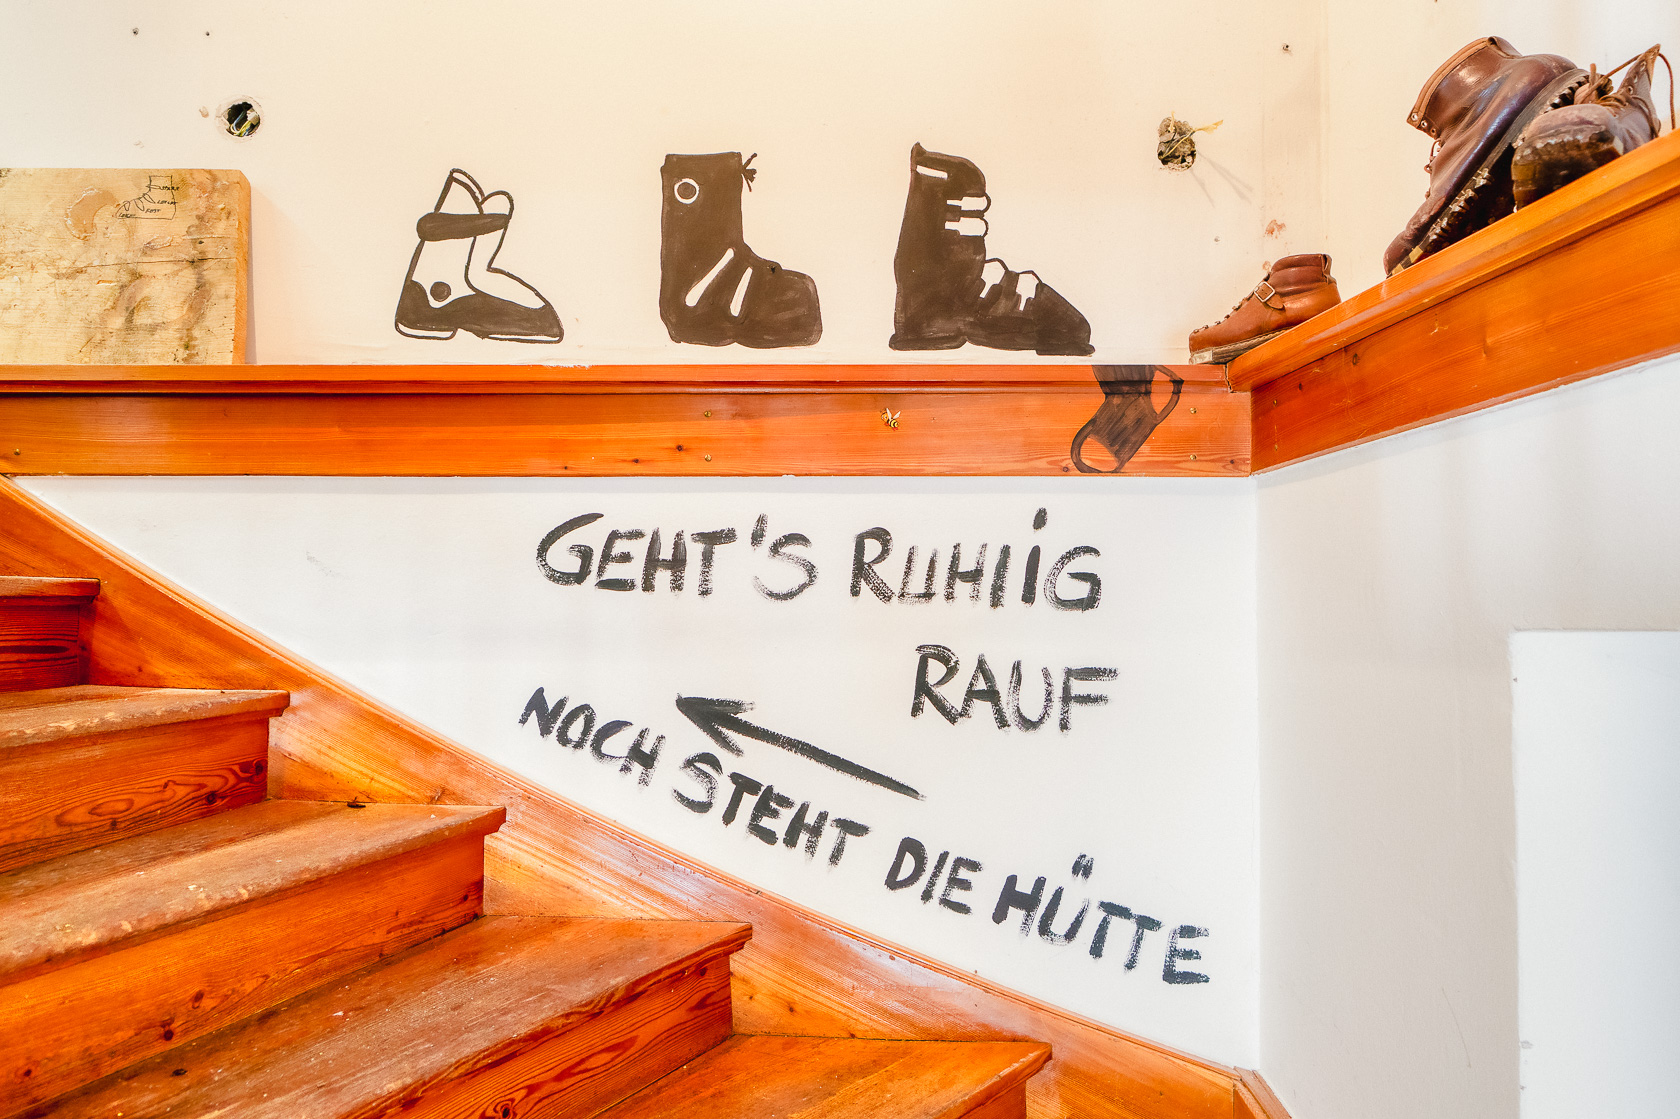 GEHT'S RUHIIG
RAUF
NOCH STEHT DIE HÜTTE